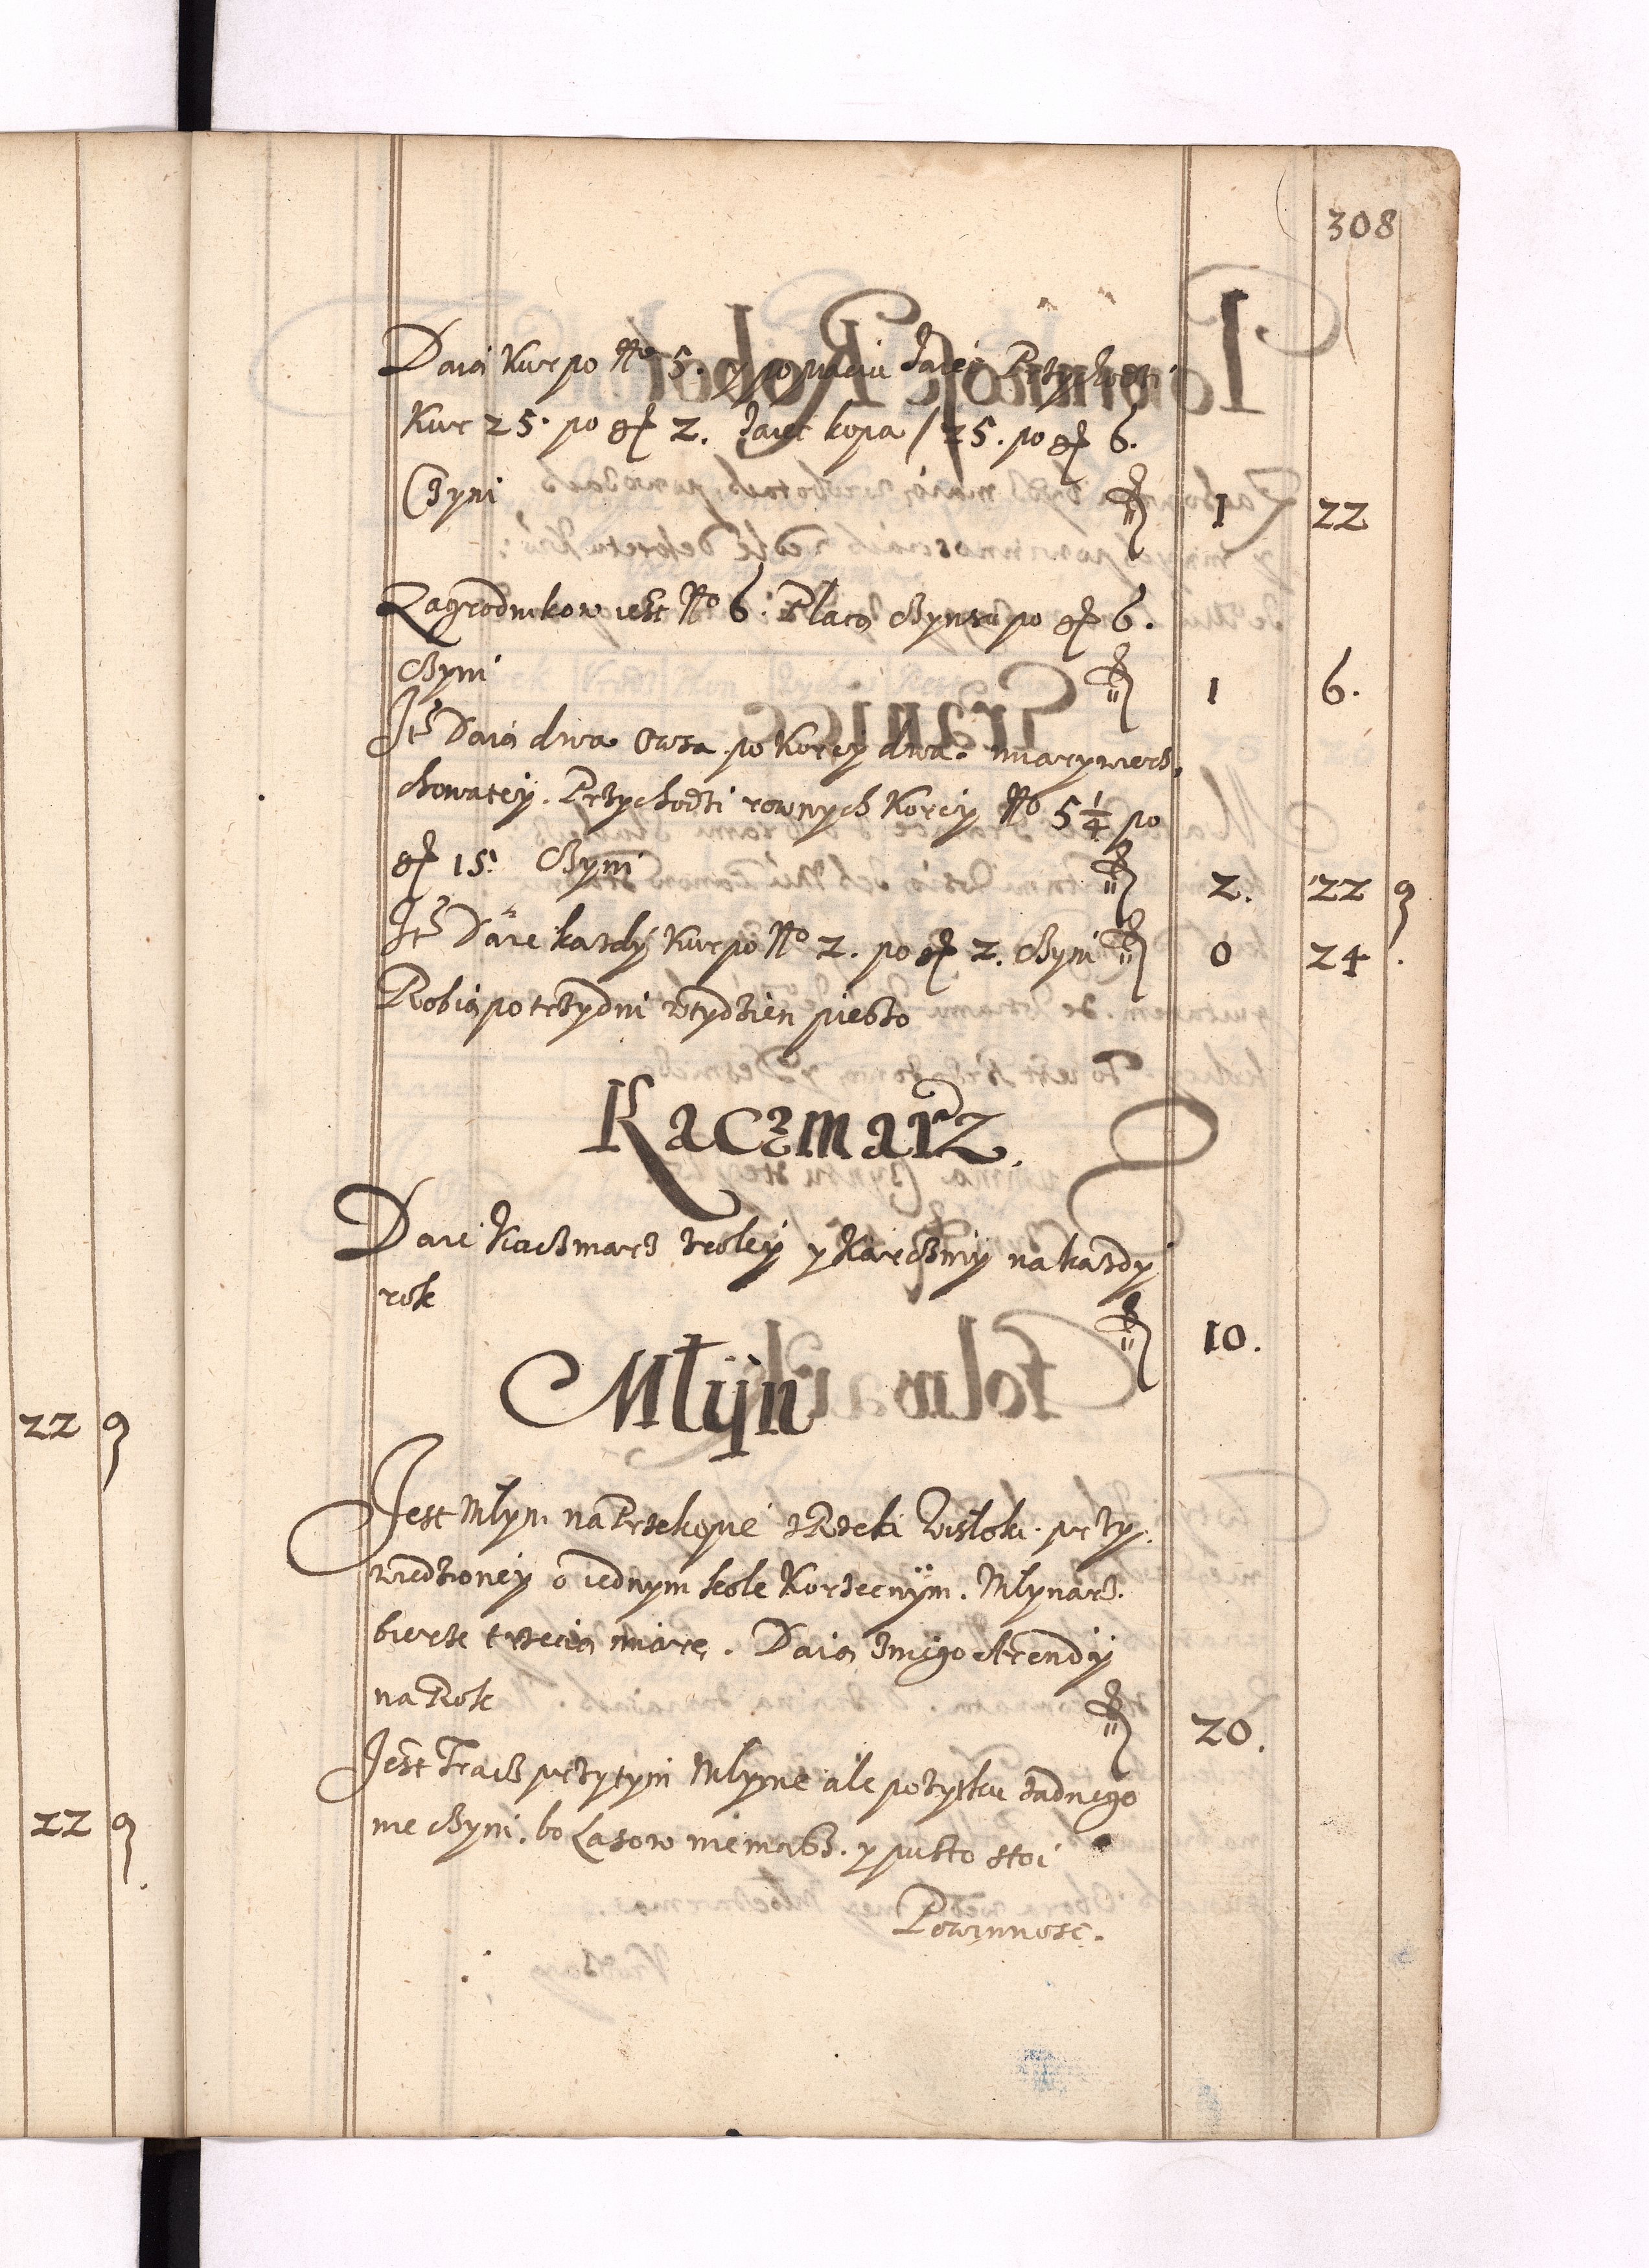 308
Daią Kur po No 5. y po piąciu Jaiec Przychodzi
Kur 25. po gr 2. Jaiec kopa / 25. po gr 6.
Czyni fl 1 22
Zagrodnikow iest No 6. Płacą czynszu po gr 6.
czyni fl 1 6.
Ite Daią dwa Owsa po Korcy dwa. miary wierz,
chowatey. Przychodzi rownych Korcy No 5 1/4 po
gr 15. czyni fl 2. 22 9
Ite Daie kazdy Kur po No 2. po gr 2. czyni fl 0 24.
Robią po trzy dni w tydzien pieszo
Kaczmarz.
Daie Kaczmarz z roley y Karczmy na kazdy
rok fl 10.
Młyn
Jest Młyn na Przekopie z Rzeki Wisłoki przy,
wiedzioney o iednym kole Korzecnym. Młynarz
bierze trzecią miarę. Daią z niego Arendy
na Rok fl 20.
Jest Tracz przy tym Młynie ale pozytku zadnego
nie czyni, bo Lasow niemasz. y pusto stoi
Powinnosc.
22 9
22 9